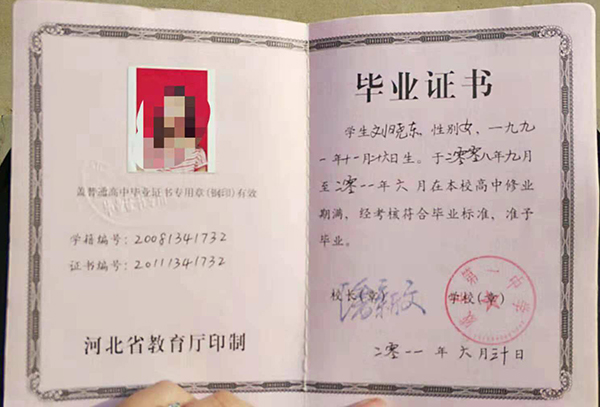 盖普通高中毕业证书专用章(钢印)有效
学籍编号：20081341732
证书编号：20111341732
河北省教育厅印制
毕业证书
学生刘晓东，性别女，一九九
一年十一月二十六日生。于二零零八年九月
至二零一一年六月在本校高中修业
期满，经考核符合毕业标准，准予
毕业。
校长(章)
学校(章)
第一中学
二零一一年六月三十日